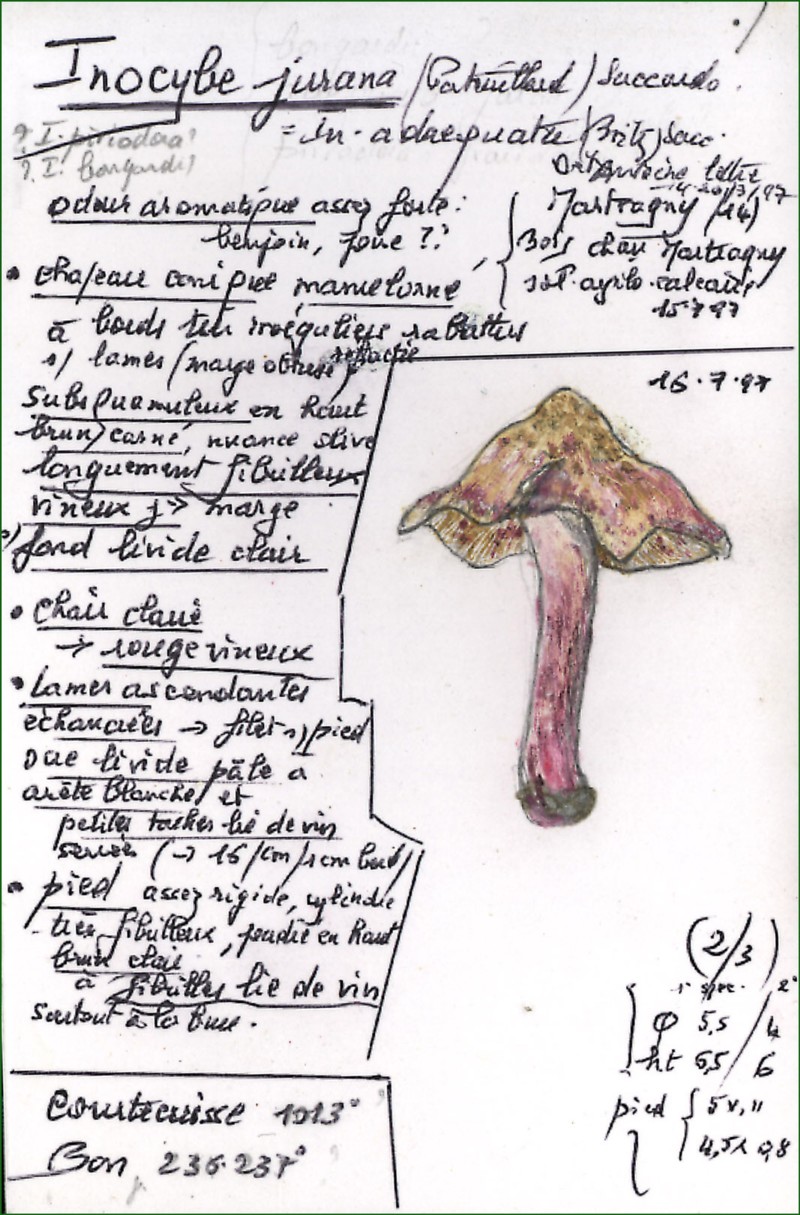 Inocybe jurana (Patouillard) Saccardo.
= In. adaequata (Britz) Sacc.
? I. piriodora?
? I. bongardii
odeur aromatique assez forte:
benjoin, poire ?
Martragny (14)
Bois chau Martragny
sol argilo-calcaire
15 7 97
• chapeau conique mamelonné
à bords très irréguliers rabattus
s/ lames (marge obtuse)
subsquamuleux en haut
brun carné, nuance olive
longuement fibrilleux
vineux j → marge
s/ fond livide clair
16.7.97
• Chair claire
→ rouge vineux
• Lames ascendantes
échancrées → filet s/ pied
livide pâle à
arête blanche et
petites taches lie de vin
serrées (→ 16/cm/1cm bord)
• pied assez rigide, cylindre
très fibrilleux, en haut
brun clair
à fibrilles lie de vin
surtout à la base.
(2/3)
1° spec. 2°
φ 5,5 / 4
ht 6,5 / 6
pied 5 x 1,1
4,5 x 0,8
Courtecuisse 1013°
Bon 236.237°